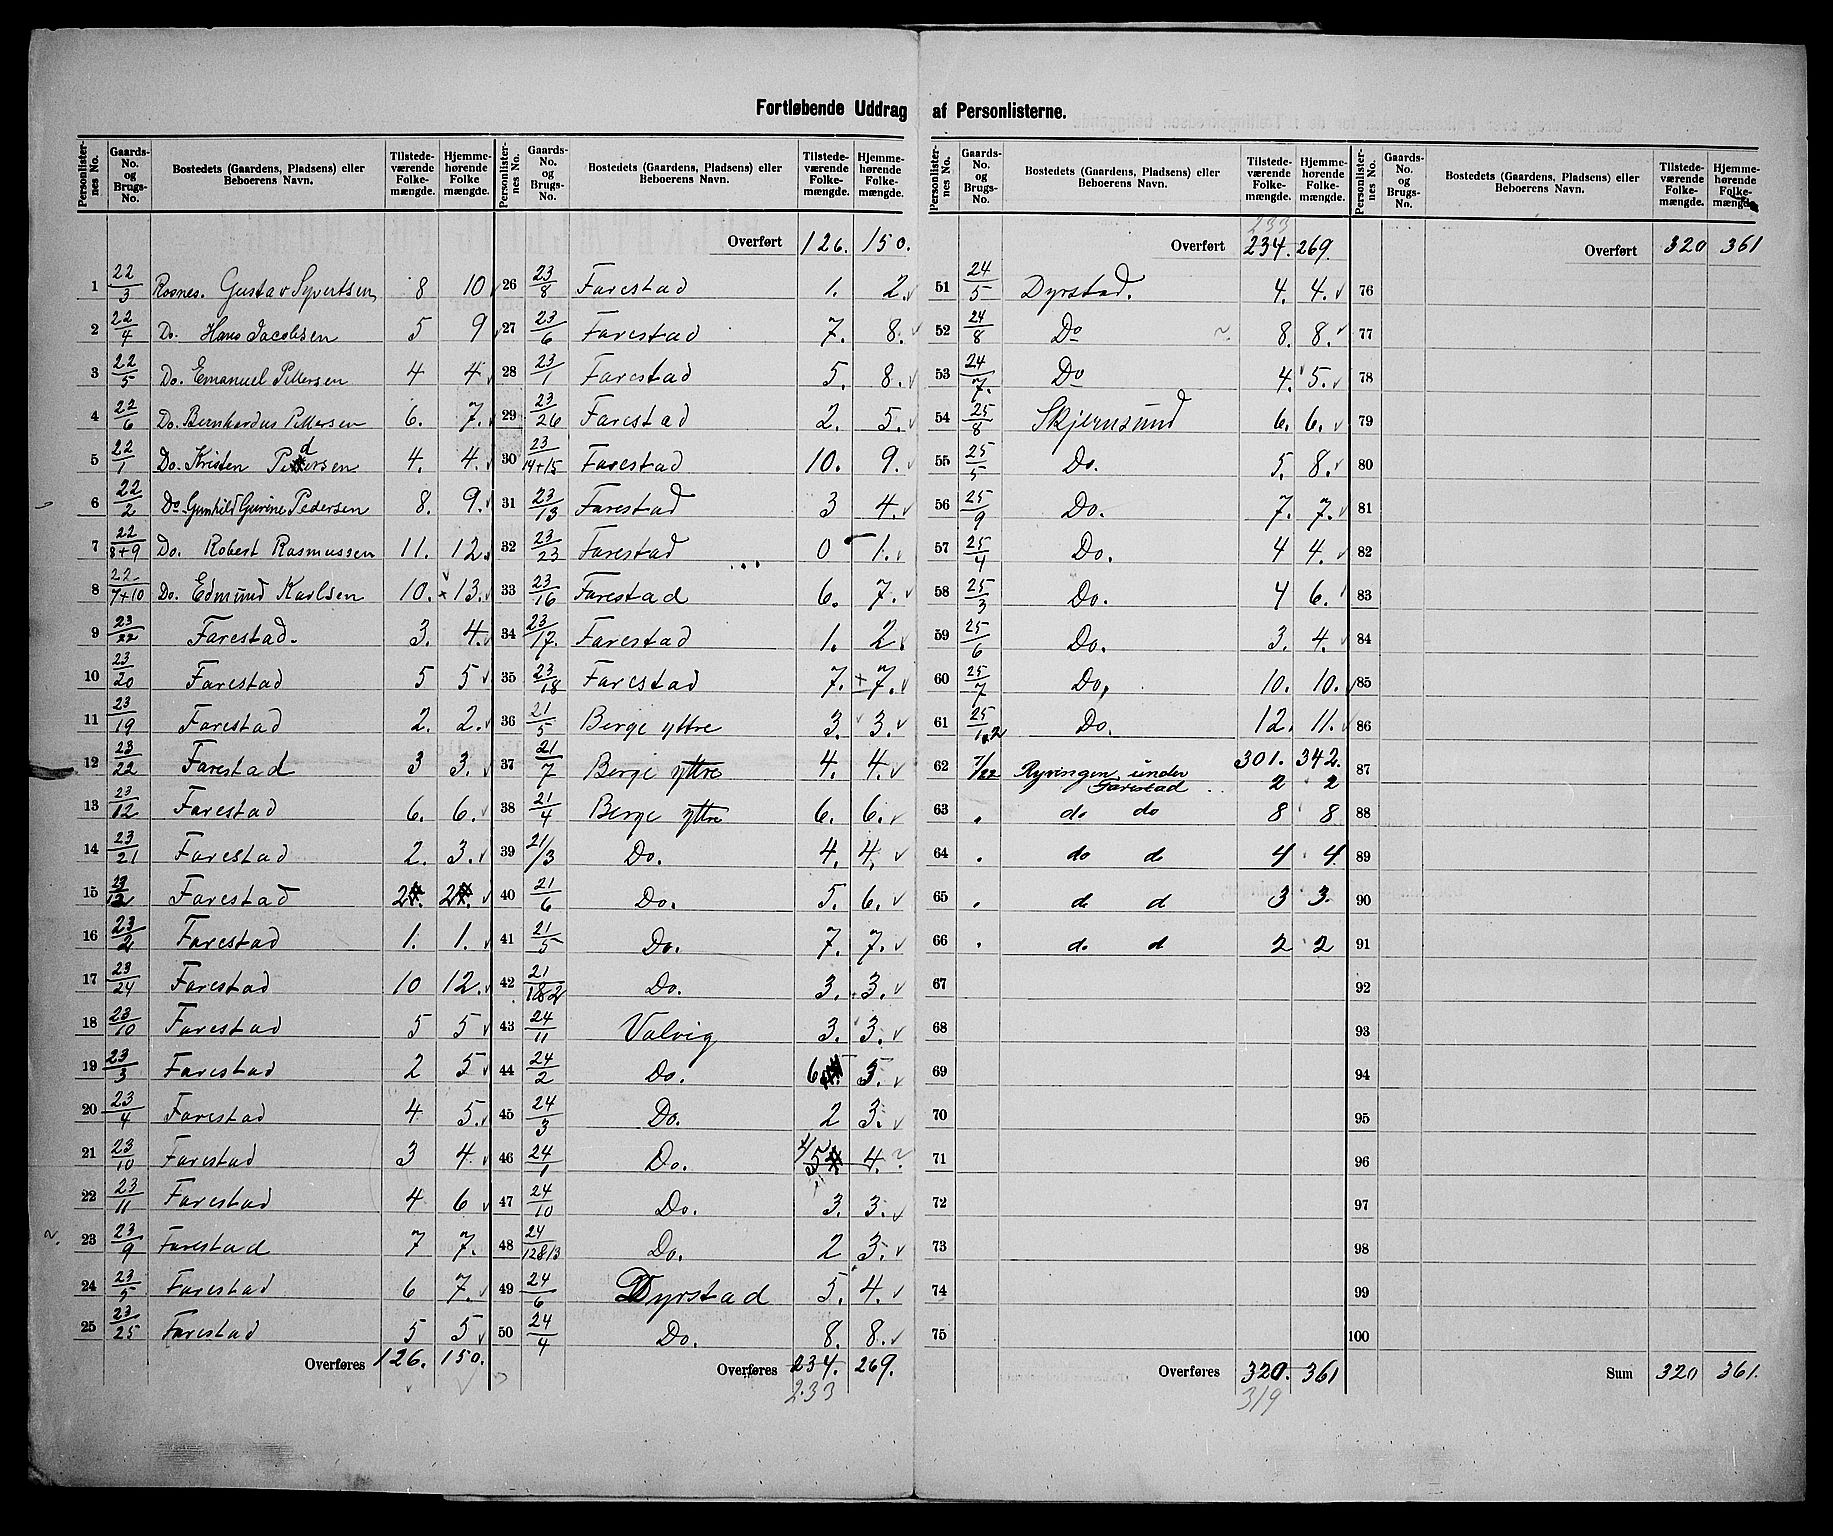 Fortløbende Uddrag af Personlisterne.
Personlister-nes No. | Gaards-No. og Brugs-No. | Bostedets (Gaardens, Pladsens) eller Beboerens Navn. | Tilstede-værende Folke-mængde. | Hjemme-hørende Folke mængde.
1 | 22/3 | Rosnes. Gustav Syvertsen | 8 | 10
2 | 22/4 | Do. Hans Jacobsen | 5 | 9
3 | 22/5 | Do. Emanuel Pettersen | 4 | 4
4 | 22/6 | Do. Bernhardus Pettersen | 6. | 7.
5 | 22/1 | Do. Kristen Pedersen | 4. | 4.
6 | 22/2 | Do. Gunhild Gurine Pedersen | 8. | 9.
7 | 22/8+9 | Do. Robert Rasmussen | 11. | 12.
8 | 22/7+10 | Do. Edmund Karlsen | 10. | 13.
9 | 23/22 | Farestad. | 3. | 4.
10 | 23/20 | Farestad | 5 | 5
11 | 23/19 | Farestad | 2. | 2.
12 | 23/22 | Farestad | 3 | 3.
13 | 23/12 | Farestad | 6. | 6.
14 | 23/21 | Farestad | 2. | 3.
15 | 23/12 | Farestad | 2 | 2
16 | 23/2 | Farestad | 1. | 1.
17 | 23/24 | Farestad | 10 | 12.
18 | 23/10 | Farestad | 5 | 5
19 | 23/3 | Farestad | 2 | 5
20 | 23/4 | Farestad | 4 | 5.
21 | 23/10 | Farestad | 3 | 4.
22 | 23/11 | Farestad | 4 | 6
23 | 23/9 | Farestad | 7 | 7.
24 | 23/5 | Farestad | 6 | 7.
25 | 23/25 | Farestad | 5 | 5
Overføres | 126. | 150.
Personlister-nes No. | Gaards-No. og Brugs-No. | Bostedets (Gaardens, Pladsens) eller Beboerens Navn. | Tilstede-værende Folke-mængde. | Hjemme-hørende Folke-mængde.
Overført | 126. | 150.
26 | 23/8 | Farestad | 1. | 2.
27 | 23/6 | Farestad | 7. | 8.
28 | 23/1 | Farestad | 5. | 8.
29 | 23/26 | Farestad | 2. | 5.
30 | 23/14+15 | Farestad | 10. | 9.
31 | 23/13 | Farestad | 3 | 4.
32 | 23/23 | Farestad | 0 | 1.
33 | 23/16 | Farestad | 6. | 7.
34 | 23/17. | Farestad | 1. | 2.
35 | 23/18 | Farestad | 7. | 7.
36 | 21/5 | Berge yttre | 3. | 3.
37 | 21/7 | Berge yttre | 4. | 4.
38 | 21/4 | Berge yttre | 6. | 6.
39 | 21/3 | Do. | 4. | 4.
40 | 21/6 | Do. | 5. | 6.
41 | 21/5 | Do. | 7. | 7.
42 | 21/1&2 | Do. | 3. | 3.
43 | 24/11 | Valvig | 3. | 3.
44 | 24/2 | Do. | 6 | 5.
45 | 24/3 | Do. | 2 | 3.
46 | 24/1 | Do. | 5 | 4.
47 | 24/10 | Do. | 3. | 3.
48 | 24/12&13 | Do. | 2 | 3.
49 | 24/6 | Dyrstad | 5. | 4.
50 | 24/4 | Do. | 8. | 8.
Overføres | 234. | 269.
233
Personlister-nes No. | Gaards-No. og Brugs-No. | Bostedets (Gaardens, Pladsens) eller Beboerens Navn. | Tilstede-værende Folke-mængde. | Hjemme-hørende Folke-mængde.
233
Overført | 234. | 269
51 | 24/5 | Dyrstad. | 4. | 4.
52 | 24/8 | Do | 8. | 8.
53 | 24/7. | Do | 4. | 5.
54 | 25/8 | Skjernsund | 6. | 6.
55 | 25/5 | Do. | 5. | 8.
56 | 25/9 | Do. | 7. | 7.
57 | 25/4 | Do. | 4 | 4.
58 | 25/3 | Do. | 4 | 6.
59 | 25/6 | Do. | 3. | 4.
60 | 25/7 | Do. | 10. | 10.
61 | 25/1.2 | Do. | 12. | 11.
301. | 342.
62 | 7/22 | Ryvingen under Farestad | 2 | 2
63 | " | do do | 8 | 8
64 | " | do d | 4 | 4
65 | " | d d | 3 | 3.
66 | " | d d | 2 | 2
67
68
69
70
71
72
73
74
75
Overføres | 320. | 361
319
Personlister-nes No. | Gaards-No. og Brugs-No. | Bostedets (Gaardens, Pladsens) eller Beboerens Navn. | Tilstede-værende Folke-mængde. | Hjemme-hørende Folke-mængde.
Overført | 320 | 361
76
77
78
79
80
81
82
83
84
85
86
87
88
89
90
91
92
93
94
95
96
97
98
99
100
Sum | 320 | 361.